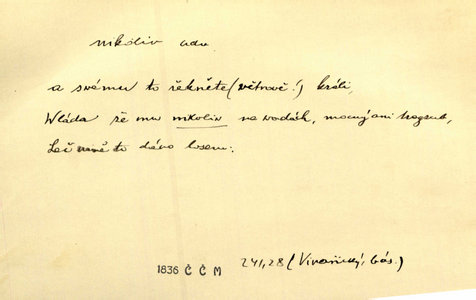 nikoliv adv.
a svému to řekněte (větrové!) králi,
Vláda že mu nikoliv na vodách, mocný ani
Leč mně to dáno losem:
1836 ČČM 241,28 (Vinařický, bás.)